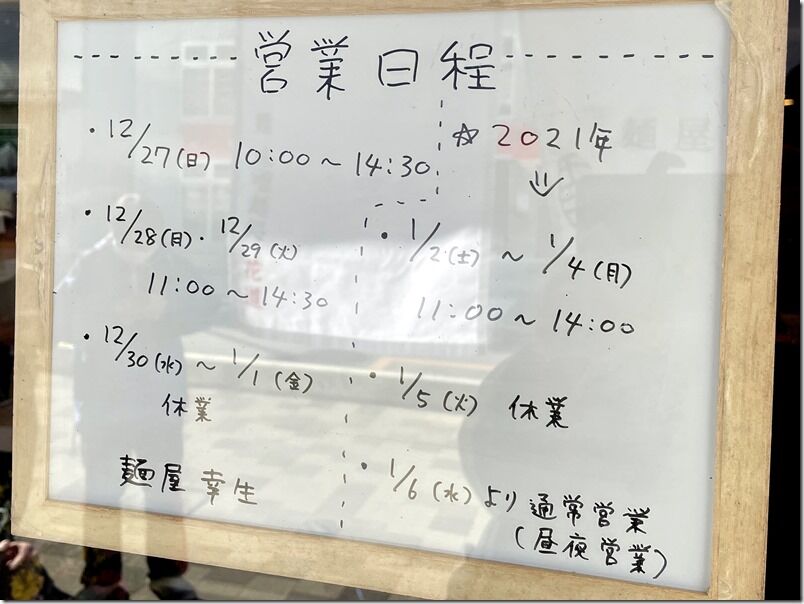 営業日程
・12/27(日) 10:00～14:30
・12/28(月)・12/29(火)
11:00～14:30
・12/30(水)～1/1(金)
休業
麺屋 幸生
☆2021年
⇓
・1/2(土)～1/4(月)
11:00～14:00
・1/5(火) 休業
・1/6(水)より通常営業
(昼夜営業)